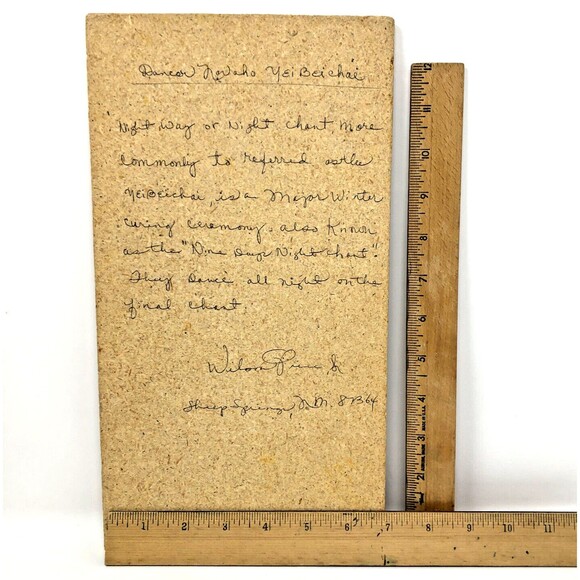 Dancer Navaho YeiBeichai
Night Way or Night Chant, More
Commonly to referred as the
YeiBeichai, is a Major Winter
Curing Ceremony. also Known
as the "Nine Days Night Chant".
They Dance all night on the
final chant.
Wilson Jr
Sheep Springs, N.M. 87364
12
11
10
9
8
7
6
5
4
3
2
MADE IN U.S.A.
1 2 3 4 5 6 7 8 9 10 11